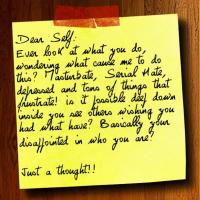 Dear Self:
Ever look at what you do,
wondering what cause me to do
this? Masturbate, Serial Hate,
depressed and tons of things that
frustrate! is it possible deep down
inside you see others wishing you
had what have? Basically your
disappointed in who you are?
Just a thought!!